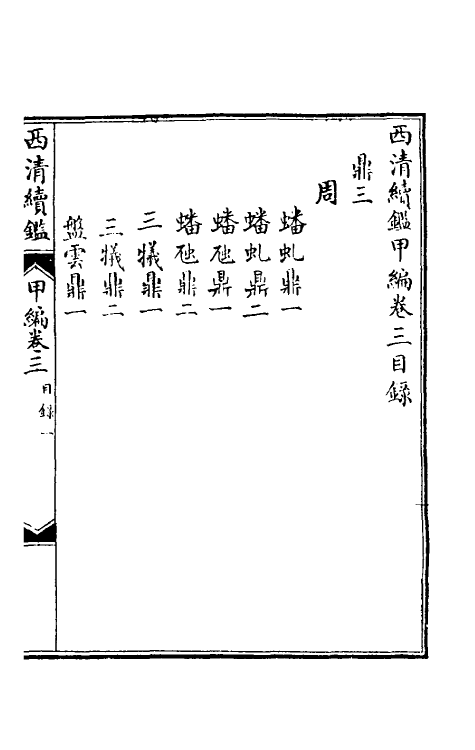 西清續鑑甲編卷三目録
鼎三
周
蟠虬鼎一
蟠虬鼎二
蟠虺鼎一
蟠虺鼎二
三犧鼎一
三犧鼎二
盤雲鼎一
西清續鑑
甲編卷三
目録
一